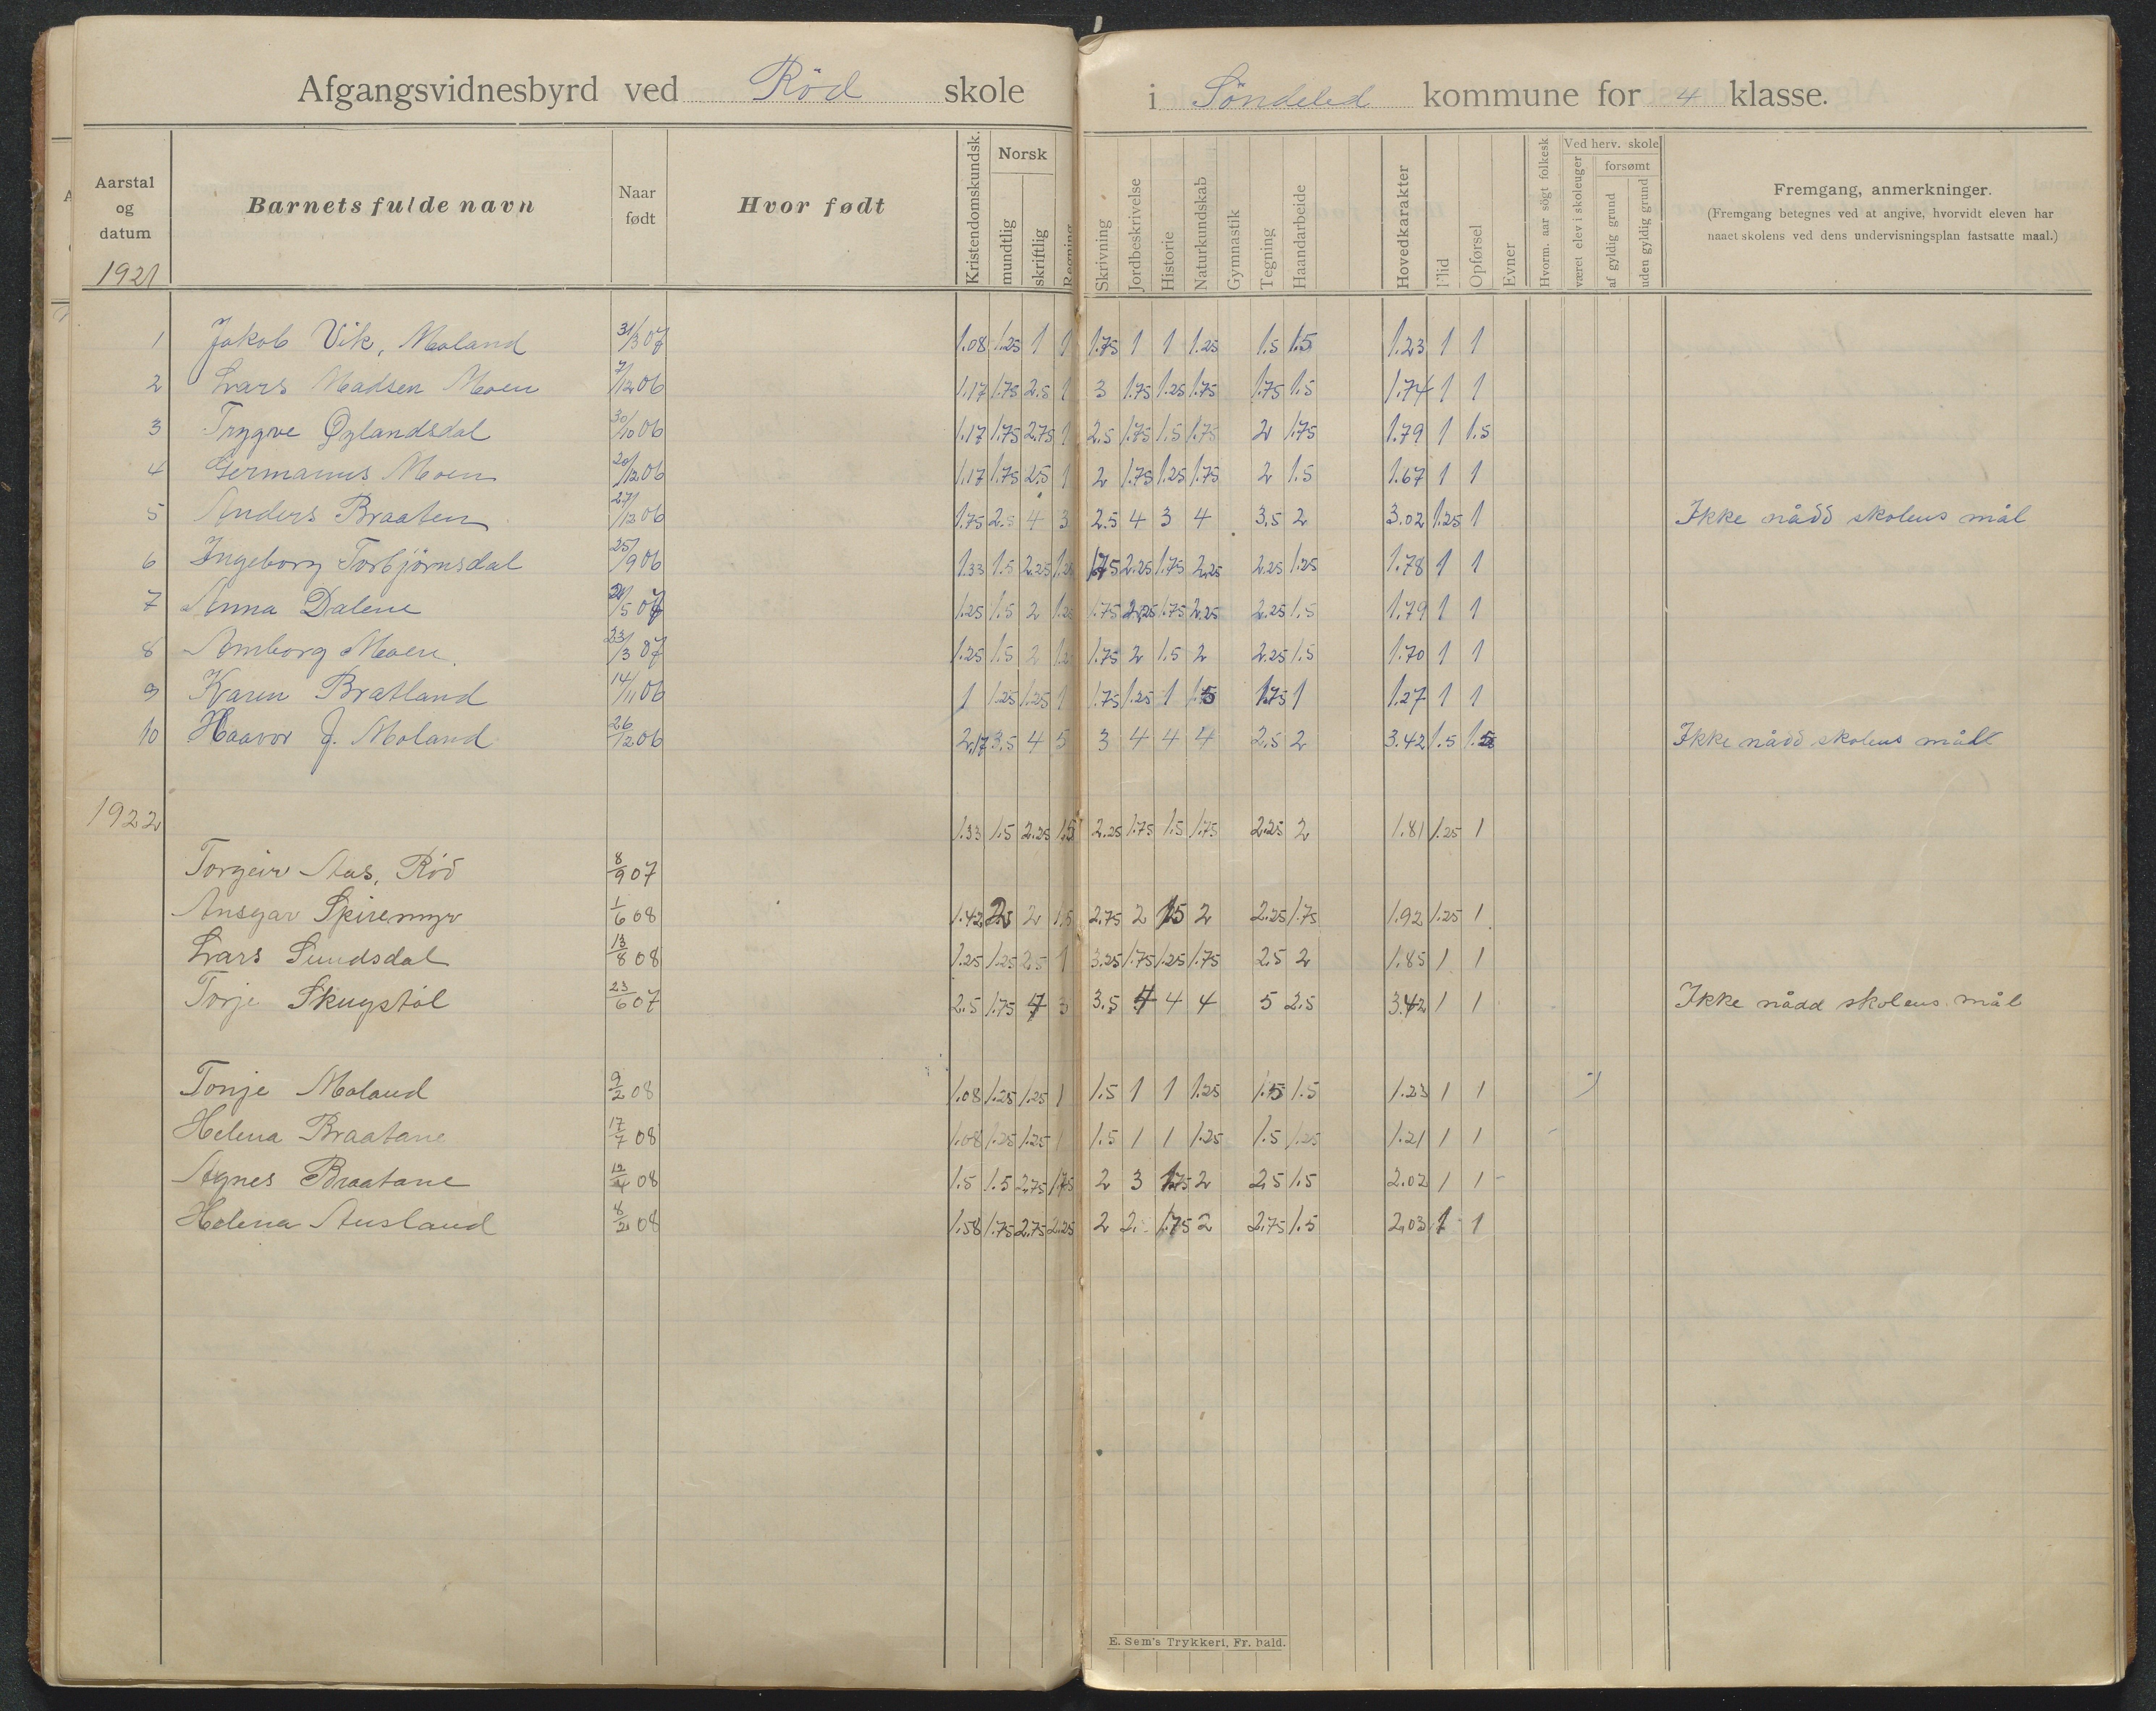 Afgangsvidnesbyrd ved Rød skole i Søndeled kommune for 4 klasse.
Aarstal og datum 1921 Barnets fulde navn Naar født Hvor født Kristendomskundsk. Norsk mundtlig skriftlig Regning Skrivning Jordbeskrivelse Historie Naturkundskab Gymnastik Tegning Haandarbeide Hovedkarakter Flid Opførsel Evner Hvorm. aar søgt folkesk. Ved herv. skole været elev i skoleuger forsømt af gyldig grund uden gyldig grund Fremgang, anmerkninger.
(Fremgang betegnes ved at angive, hvorvidt eleven har
naaet skolens ved dens undervisningsplan fastsatte maal.)
1 Jakob Vik, Moland 31/3 07 1.08 1.25 1 1 1.75 1 1 1.25 1.5 1.5 1.23 1 1
2 Lars Madsen Moen 7/12 06 1.17 1.75 2.5 1 3 1.75 1.25 1.75 1.75 1.5 1.74 1 1
3 Trygve Øylandsdal 30/10 06 1.17 1.75 2.75 1 2.5 1.75 1.5 1.75 2 1.75 1.79 1 1.5
4 Germanus Moen 20/12 06 1.17 1.75 2.5 1 2 1.75 1.25 1.75 2 1.5 1.67 1 1
5 Anders Braaten 27/12 06 1.75 2.5 4 3 2.5 4 3 4 3.5 2 3.02 1.25 1 Ikke nådd skolens mål
6 Ingeborg Torbjørnsdal 25/9 06 1.33 1.5 2.25 1.25 1.75 2.25 1.75 2.25 2.25 1.25 1.78 1 1
7 Anna Dalene /5 07 1.25 1.5 2 1.25 1.75 2.25 1.75 2.25 2.25 1.5 1.79 1 1
8 Amborg Moen 23/3 07 1.25 1.5 2 1.25 1.75 2 1.5 2 2.25 1.5 1.70 1 1
9 Karen Bratland 14/11 06 1 1.25 1.25 1 1.75 1.25 1 1.5 1.75 1 1.27 1 1
10 Haavor J. Moland 26/12 06 2.17 3.5 4 5 3 4 4 4 2.5 2 3.42 1.5 Ikke nådd skolens mål
1922 1.33 1.5 2.25 1.5 2.25 1.75 1.5 1.75 2.25 2 1.81 1.25 1
Torgeir Aas, Rød 8/9 07
Ansgar Spiremyr 1/6 08 1.42 2 1.5 2.75 2 1.5 2 2.25 1.75 1.92 1.25 1
Lars Sundsdal 13/8 08 1.25 1.25 2.5 1 3.25 1.75 1.25 1.75 2.5 2 1.85 1 1
Torje Skugstøl 23/6 07 2.5 1.75 4 3 3.5 4 4 4 5 2.5 3.42 1 1 Ikke nådd skolens mål
Tonje Moland 9/2 08 1.08 1.25 1.25 1 1.5 1 1 1.25 1.5 1.5 1.23 1 1
Helena Braatane 17/7 08 1.08 1.25 1.25 1 1.5 1 1 1.25 1.5 1.25 1.21 1 1
Agnes Braatane 12/4 08 1.5 1.5 2.75 1.75 2 3 1.75 2 2.5 1.5 2.02 1 1
Helena Ausland 8/2 08 1.58 1.75 2.75 2.25 2 1.75 2 2.75 1.5 2.03 1 1
E. Sem's Trykkeri, Fr. hald.